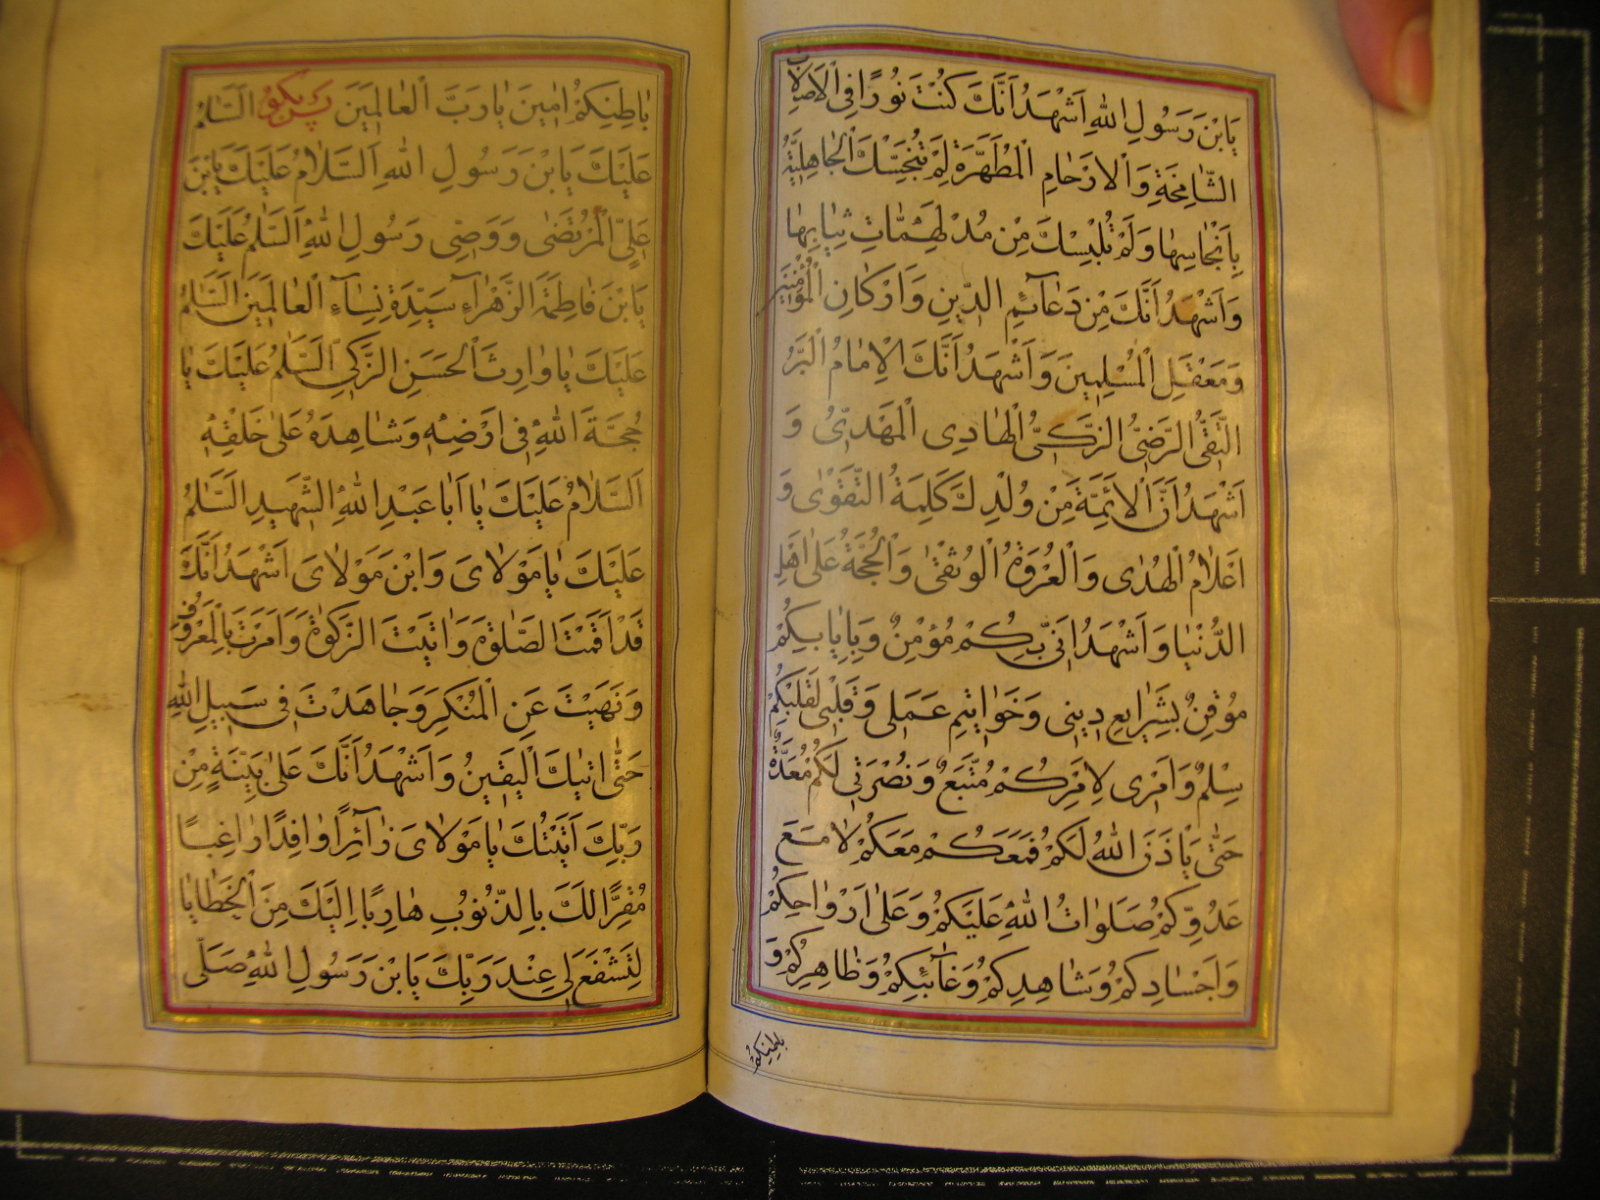 يَابْنَ رَسُولِ اللهِ اَشْهَدُ اَنَّكَ كُنْتَ نُورًا فِى الْاَصْلَابِ
الشَّامِخَةِ وَالْاَرْحَامِ الْمُطَهَّرَةِ لَمْ تُنَجِّسْكَ الْجَاهِلِيَّةُ
بِاَنْجَاسِهَا وَلَمْ تُلْبِسْكَ مِنْ مُدْلَهِمَّاتِ ثِيَابِهَا
وَاَشْهَدُ اَنَّكَ مِنْ دَعَآئِمِ الدِّينِ وَاَرْكَانِ الْمُؤْمِنِينَ
وَمَعْقَلِ الْمُسْلِمِينَ وَاَشْهَدُ اَنَّكَ الْاِمَامُ الْبَرُّ
التَّقِىُّ الرَّضِىُّ الزَّكِىُّ الْهَادِى الْمَهْدِىُّ وَ
اَشْهَدُ اَنَّ الْاَئِمَّةَ مِنْ وُلْدِكَ كَلِمَةُ التَّقْوٰى وَ
اَعْلَامُ الْهُدٰى وَالْعُرْوَةُ الْوُثْقٰى وَالْحُجَّةُ عَلٰى اَهْلِ
الدُّنْيَا وَاَشْهَدُ اَنِّى بِكُمْ مُؤْمِنٌ وَبِاِيَابِكُمْ
مُوقِنٌ بِشَرَايِعِ دِينِى وَخَوَاتِيمِ عَمَلِى وَقَلْبِى لِقَلْبِكُمْ
سِلْمٌ وَاَمْرِى لِاَمْرِكُمْ مُتَّبِعٌ وَنُصْرَتِى لَكُمْ مُعَدَّةٌ
حَتّٰى يَاْذَنَ اللهُ لَكُمْ فَمَعَكُمْ مَعَكُمْ لَا مَعَ
عَدُوِّكُمْ صَلَوَاتُ اللهِ عَلَيْكُمْ وَعَلٰى اَرْوَاحِكُمْ
وَاَجْسَادِكُمْ وَشَاهِدِكُمْ وَغَآئِبِكُمْ وَظَاهِرِكُمْ وَ
بَاطِنِكُمْ
بَاطِنِكُمْ اٰمِينَ يَا رَبَّ الْعَالَمِينَ پس بگو اَلسَّلٰمُ
عَلَيْكَ يَابْنَ رَسُولِ اللهِ اَلسَّلَامُ عَلَيْكَ يَابْنَ
عَلِىٍّ الْمُرْتَضٰى وَوَصِىِّ رَسُولِ اللهِ اَلسَّلٰمُ عَلَيْكَ
يَابْنَ فَاطِمَةَ الزَّهْرَآءِ سَيِّدَةِ نِسَآءِ الْعَالَمِينَ اَلسَّلٰمُ
عَلَيْكَ يَا وَارِثَ الْحَسَنِ الزَّكِىِّ اَلسَّلٰمُ عَلَيْكَ يَا
حُجَّةَ اللهِ فِى اَرْضِهِ وَشَاهِدَهُ عَلٰى خَلْقِهِ
اَلسَّلَامُ عَلَيْكَ يَا اَبَا عَبْدِ اللهِ الشَّهِيدِ اَلسَّلٰمُ
عَلَيْكَ يَا مَوْلَاىَ وَابْنَ مَوْلَاىَ اَشْهَدُ اَنَّكَ
قَدْ اَقَمْتَ الصَّلٰوةَ وَاٰتَيْتَ الزَّكٰوةَ وَاَمَرْتَ بِالْمَعْرُوفِ
وَنَهَيْتَ عَنِ الْمُنْكَرِ وَجَاهَدْتَ فِى سَبِيلِ اللهِ
حَتّٰى اَتٰيكَ الْيَقِينُ وَاَشْهَدُ اَنَّكَ عَلٰى بَيِّنَةٍ مِنْ
رَبِّكَ اَتَيْتُكَ يَا مَوْلَاىَ زَآئِرًا وَافِدًا رَاغِبًا
مُقِرًّا لَكَ بِالذُّنُوبِ هَارِبًا اِلَيْكَ مِنَ الْخَطَايَا
لِتَشْفَعَ لِى عِنْدَ رَبِّكَ يَابْنَ رَسُولِ اللهِ صَلَّى